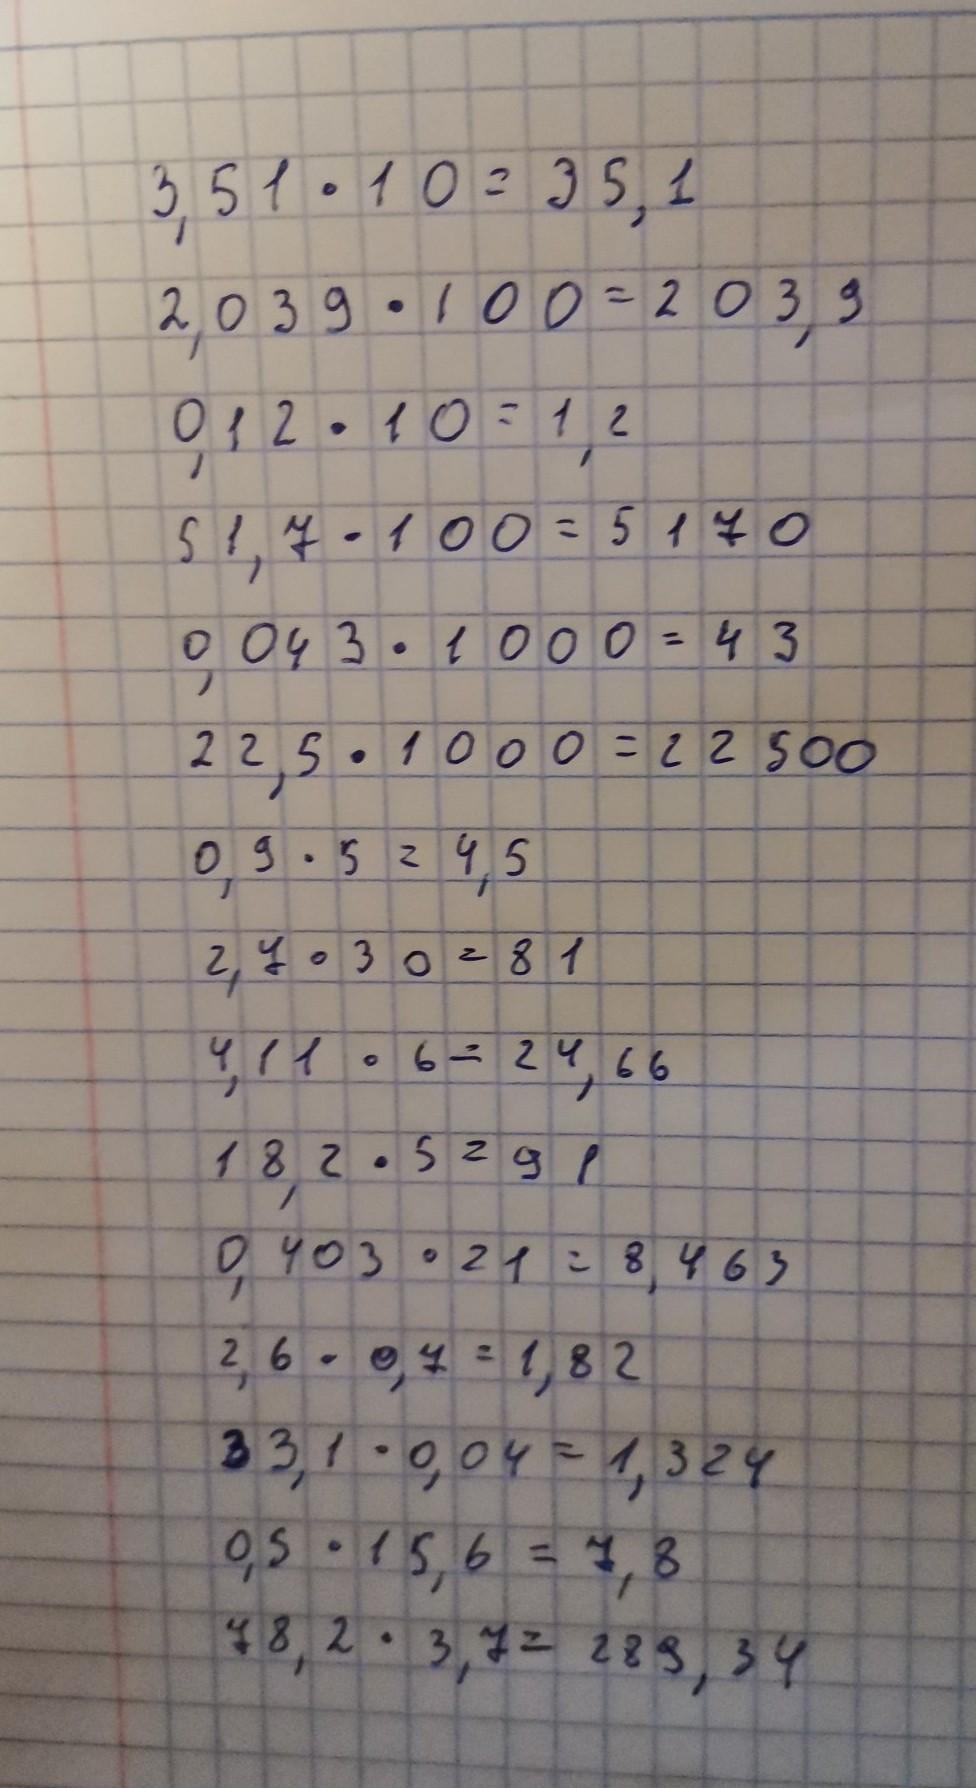 3,51 · 10 = 35,1
2,039 · 100 = 203,9
0,12 · 10 = 1,2
51,7 · 100 = 5170
0,043 · 1000 = 43
22,5 · 1000 = 22500
0,9 · 5 = 4,5
2,7 · 30 = 81
4,11 · 6 = 24,66
18,2 · 5 = 91
0,403 · 21 = 8,463
2,6 · 0,7 = 1,82
33,1 · 0,04 = 1,324
0,5 · 15,6 = 7,8
78,2 · 3,7 = 289,34